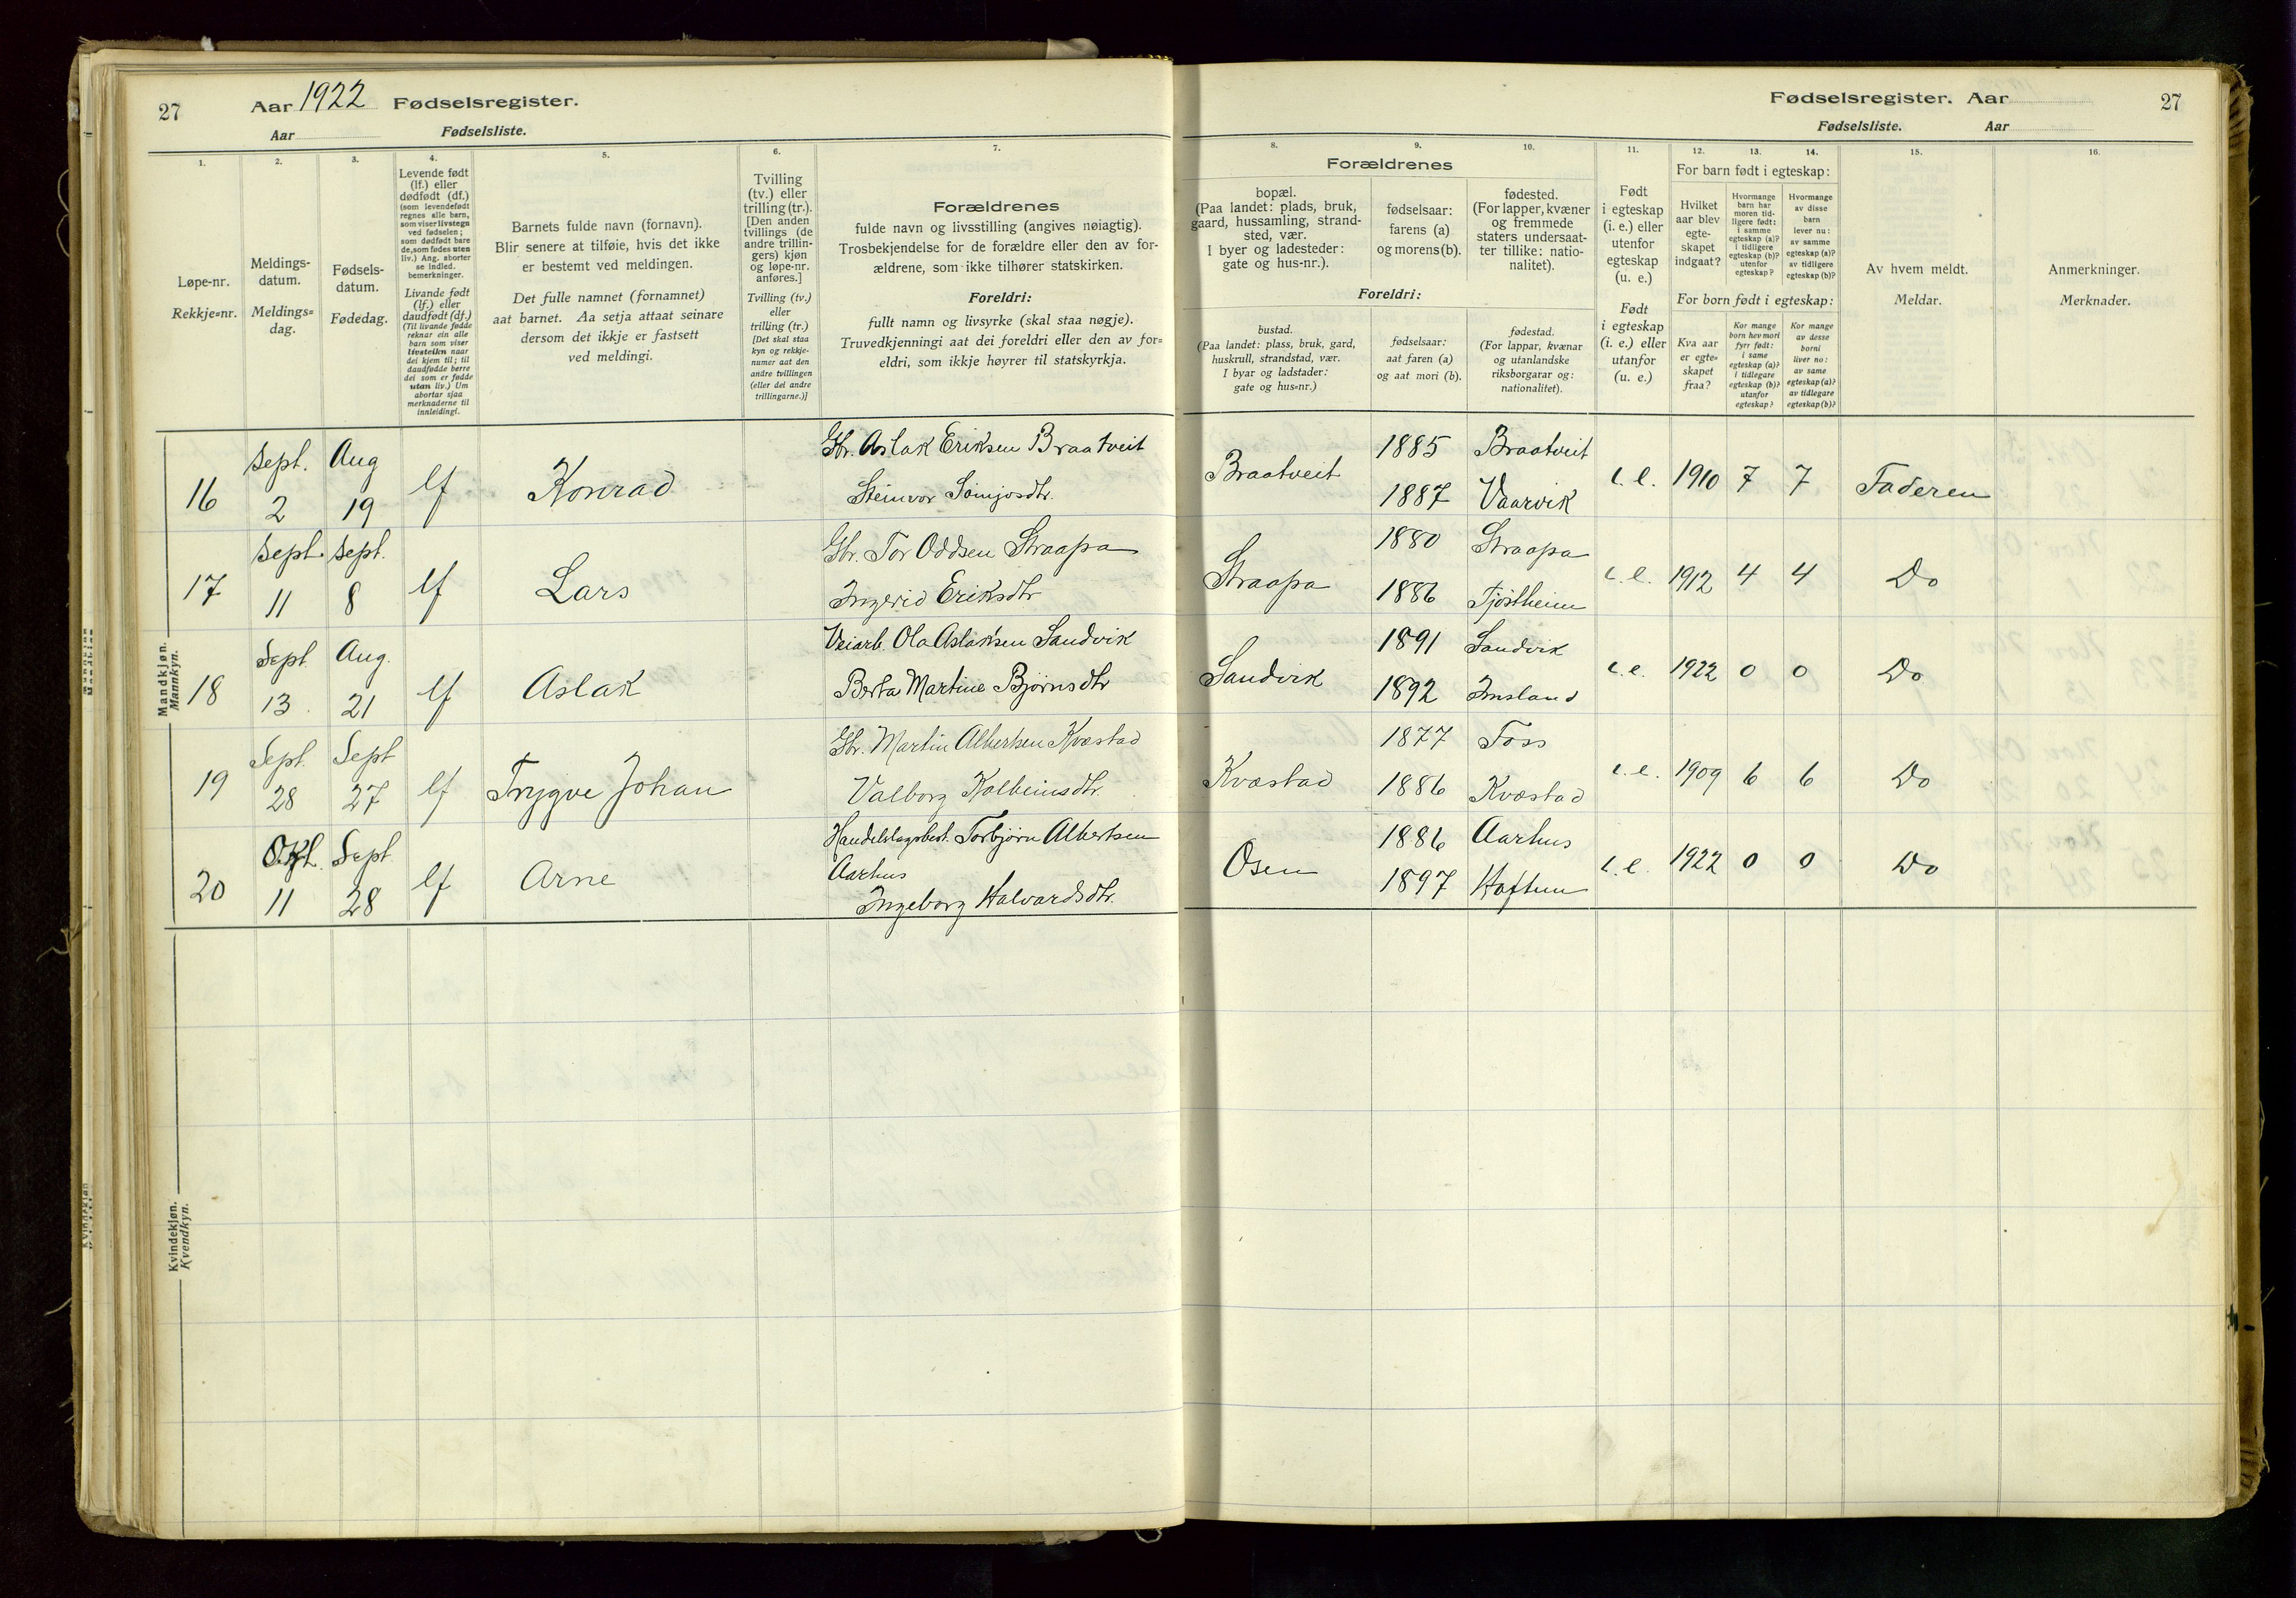 27 Aar 1922 Fødselsregister.
Aar Fødselsliste.
1. 2. 3. 4. 5. 6. 7.
Løpe-nr.
Rekkje=nr.
Meldings-
datum.
Meldings=
dag.
Fødsels-
datum.
Fødedag.
Levende født
(lf.) eller
dødfødt (df.)
(som levendefødt
regnes alle barn,
som viser livstegn
ved fødselen;
som dødfødt bare
de, som fødes uten
liv.) Ang. aborter
se indled.
bemerkninger.
Livande født
(lf.) eller
daudfødt (df.)
(Til livande fødde
reknar ein alle
barn som viser
livsteikn naar
dei kjem til; til
daudfødde berre
dei som er fødde
utan liv.) Um
abortar sjaa
merknaderne til
innleidingi.
Barnets fulde navn (fornavn).
Blir senere at tilføie, hvis det ikke
er bestemt ved meldingen.
Det fulle namnet (fornamnet)
aat barnet. Aa setja attaat seinare
dersom det ikkje er fastsett
ved meldingi.
Tvilling
(tv.) eller
trilling (tr.).
[Den anden
tvillings (de
andre trillin-
gers) kjøn
og løpe-nr.
anføres.]
Tvilling (tv.)
eller
trilling (tr.)
[Det skal staa
kyn og rekkje-
numer aat den
andre tvillingen
(eller dei andre
trillingarne.)]
Forældrenes
fulde navn og livsstilling (angives nøiagtig).
Trosbekjendelse for de forældre eller den av for-
ældrene, som ikke tilhører statskirken.
Foreldri:
fullt namn og livsyrke (skal staa nøgje).
Truvedkjenningi aat dei foreldri eller den av for=
eldri, som ikkje høyrer til statskyrkja.
Mandkjøn.
Mannkyn.
16 Sept. 2 Aug 19 lf Konrad
Gbr. Aslak Eriksen Braatveit
Steinvor Somjosdtr.
17 Sept. 11 Sept. 8 lf Lars
Gbr. Tor Oddsen Straapa
Ingerid Eriksdtr
18 Sept. 13 Aug. 21 lf Aslak
Veiarb. Ola Aslaksen Sandvik
Berta Martine Bjørnsdtr
19 Sept. 28 Sept 27 lf Trygve Johan
Gbr. Martin Albertsen Kvæstad
Valborg Kolbeinsdtr.
20 Okt. 11 Sept. 28 lf Arne
Handelslagsbest. Torbjørn Albertsen
Aarhus
Ingeborg Halvardsdtr.
Kvindekjøn.
Kvendkyn.
Fødselsregister. Aar 27
Fødselsliste. Aar
8. 9. 10. 11. 12. 13. 14. 15. 16.
Forældrenes
bopæl.
(Paa landet: plads, bruk,
gaard, hussamling, strand-
sted, vær.
I byer og ladesteder:
gate og hus-nr.).
fødselsaar:
farens (a)
og morens (b).
fødested.
(For lapper, kvæner
og fremmede
staters undersaat-
ter tillike: natio-
nalitet).
Foreldri:
bustad.
(Paa landet: plass, bruk, gard,
huskrull, strandstad, vær.
I byar og ladstader:
gate og hus=nr.)
fødselsaar:
aat faren (a)
og aat mori (b).
fødestad.
(For lappar, kvænar
og utanlandske
riksborgarar og:
nationalitet).
Født
i egteskap
(i. e.) eller
utenfor
egteskap
(u. e.)
Født
i egteskap
(i. e.) eller
utanfor
(u. e.)
For barn født i egteskap:
Hvilket
aar blev
egte-
skapet
indgaat?
Hvormange
barn har
moren tid-
ligere født:
i samme
egteskap (a)?
i tidligere
egteskap (b)?
utenfor
egteskap?
Hvormange
av disse
barn
lever nu:
av samme
egteskap (a)?
av tidligere
egteskap (b)?
For born født i egteskap:
Kva aar
er egte=
skapet
fraa?
Kor mange
born hev mori
fyrr født:
i same
egteskap (a)?
i tidlegare
egteskap (b)?
utanfor
egteskap?
Kor mange
av desse
borni
liver no:
av same
egteskap (a)?
av tidlegare
egteskap (b)?
Av hvem meldt.
Meldar.
Anmerkninger.
Merknader.
Braatveit 1885 Braatveit i. e. 1910 7 7 Faderen
1887 Vaarvik
Straapa 1880 Straapa i. e. 1912 4 4 Do
1886 Tjøstheim
Sandvik 1891 Sandvik i. e. 1922 0 0 Do
1892 Imsland
Kvæstad 1877 Foss i. e. 1909 6 6 Do
1886 Kvæstad
Osen 1886 Aarhus i. e. 1922 0 0 Do
1897 Haftun